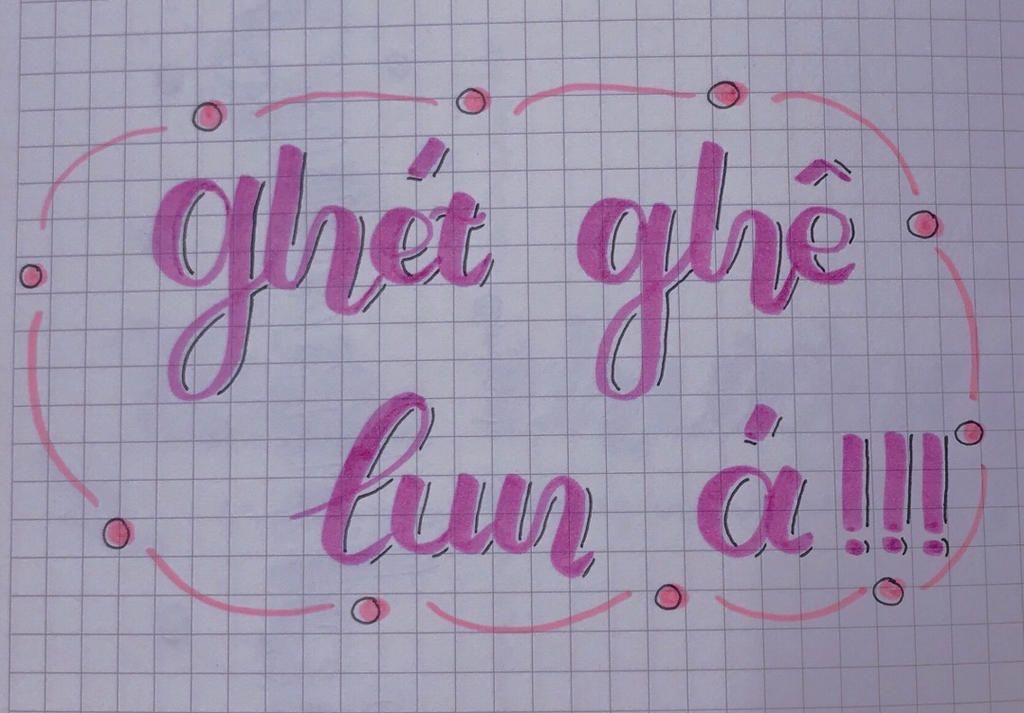 ghét ghê
lun á!!!